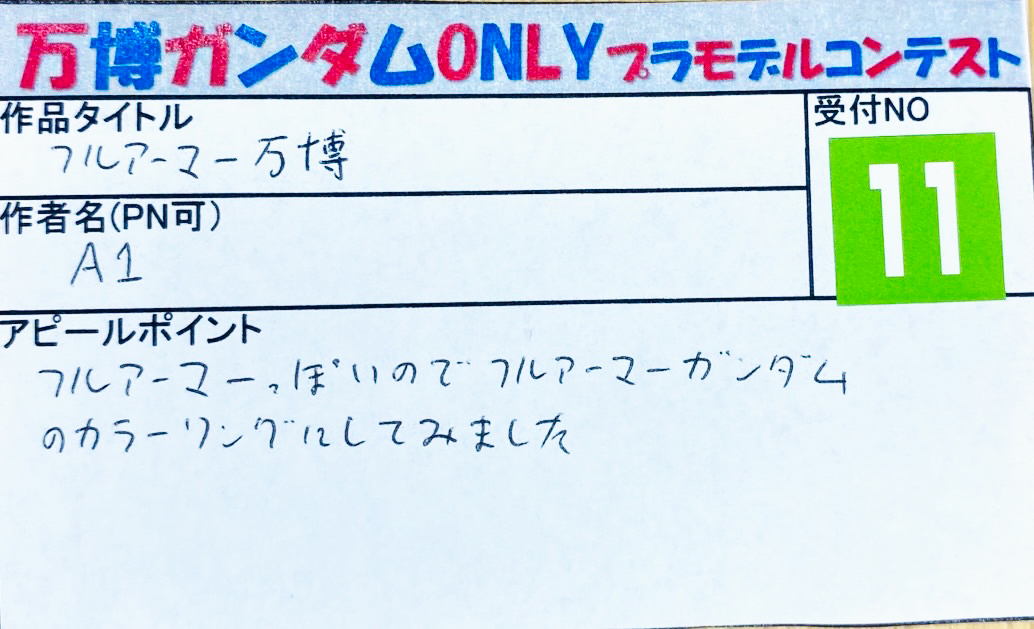 万博ガンダムONLYプラモデルコンテスト
作品タイトル
フルアーマー万博
受付NO
11
作者名(PN可)
A1
アピールポイント
フルアーマーっぽいのでフルアーマーガンダム
のカラーリングにしてみました